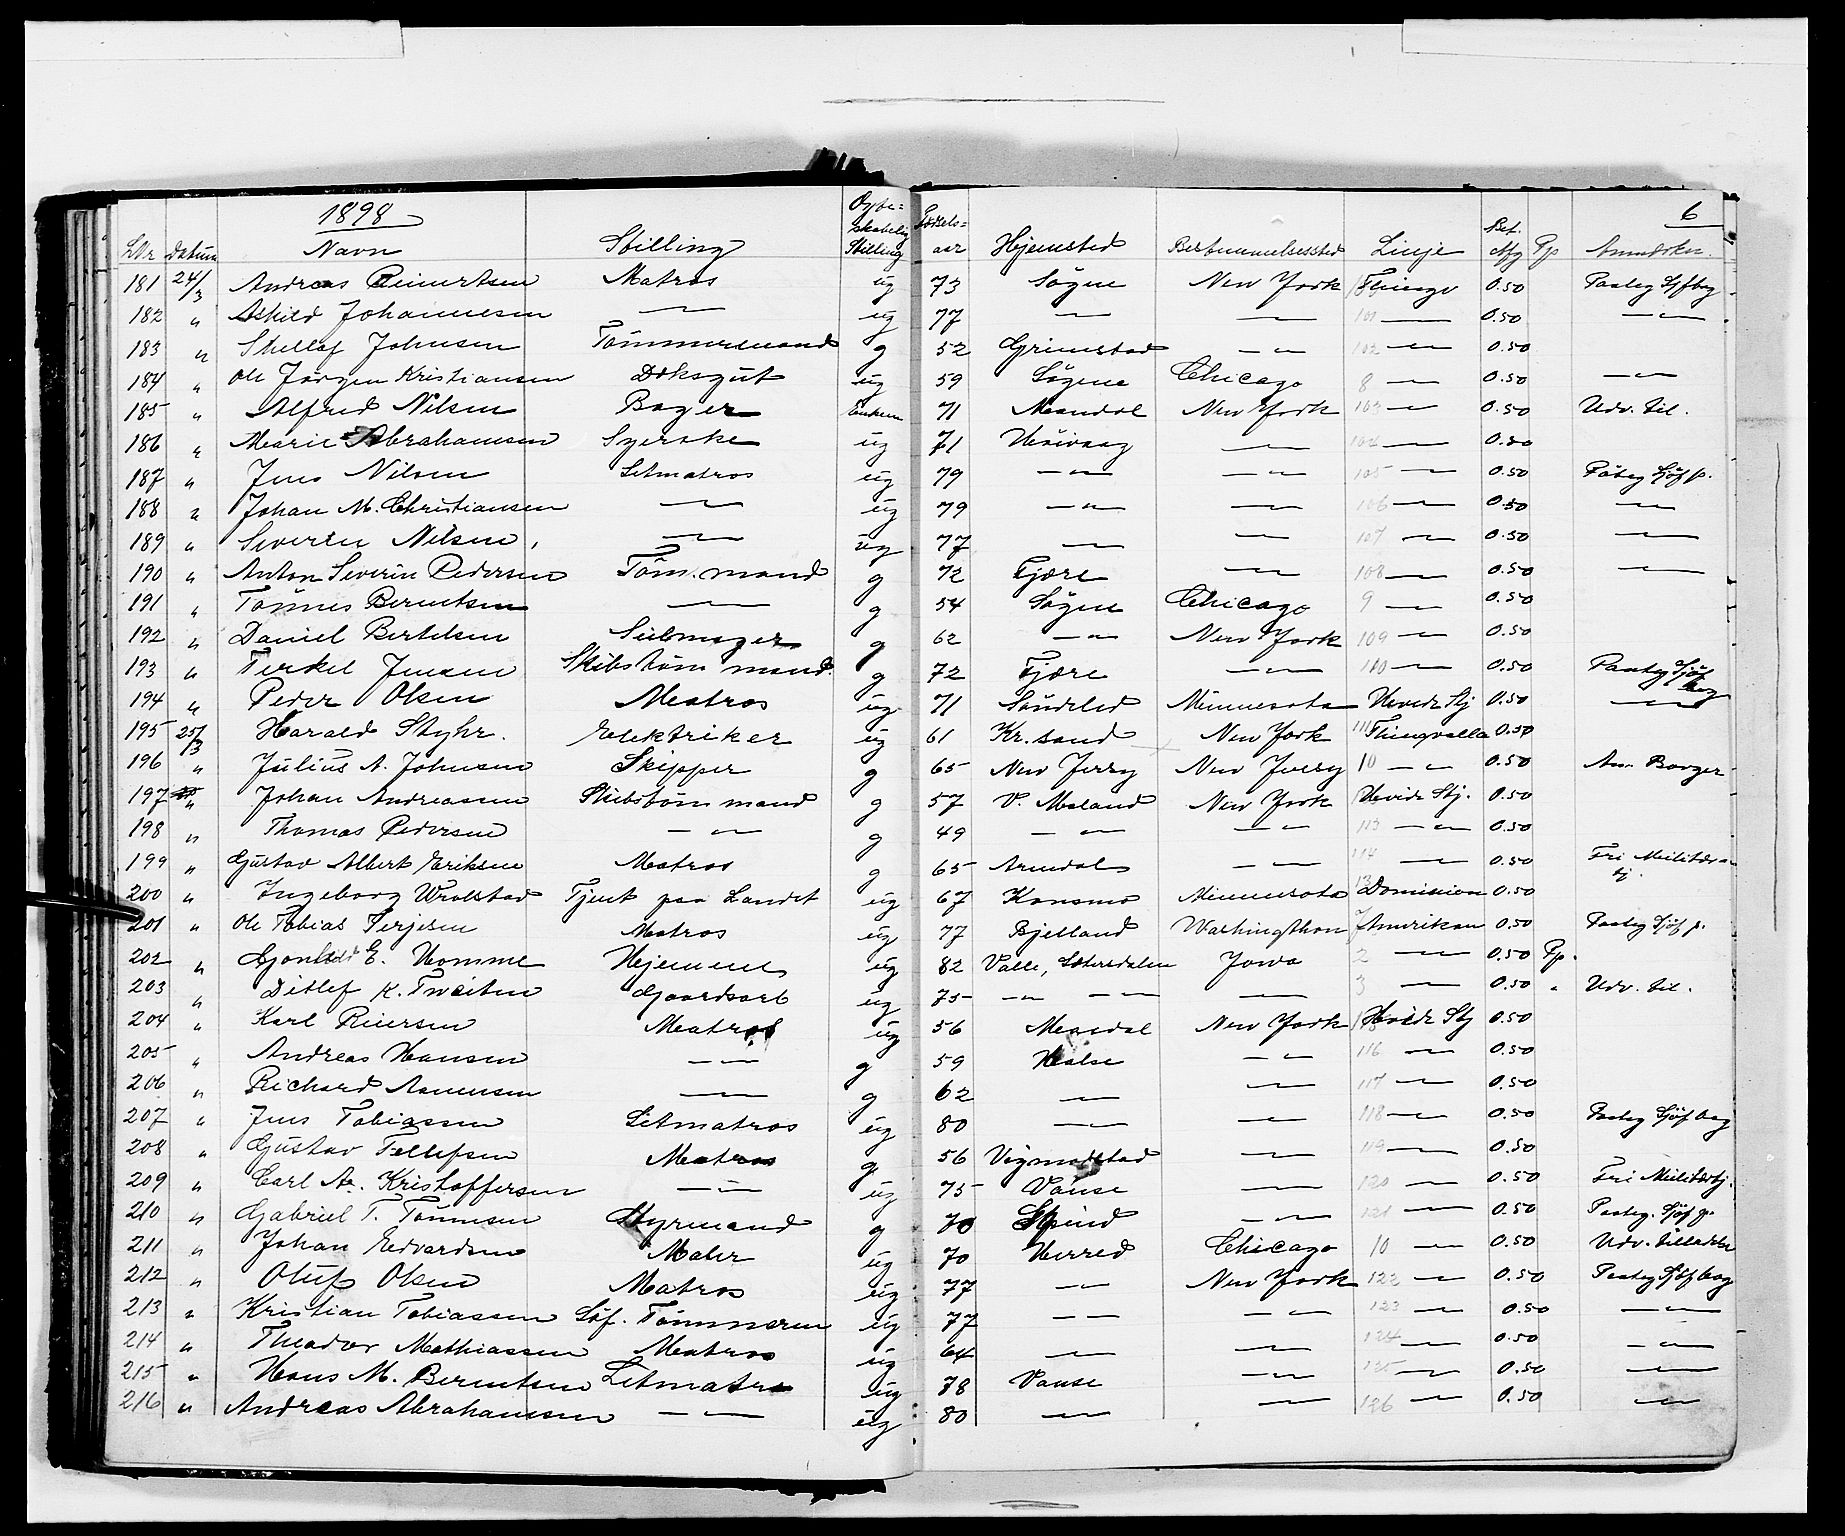 1898 6
LNr datum Navn Stilling Ægteskabelig Stilling Fødsels-aar Hjemsted Bestemmelsessted Linje Bet. Afg Pp Anmærkn.
181 24/3 Andreas Reinertsen Matros ug 73 Søgne New York Thingv 0.50 Paateg Sjfbog
182 " Askild Johannesen —〃— ug 77 —〃— —〃— 101 —〃— 0.50 —〃—
183 " Johnsen Tømmermand g 52 Grimstad —〃— 102 —〃— 0.50
184 " Ole Jørgen Kristiansen Doksgut ug 59 Søgne Chicago 8 —〃— 0.50 —〃—
185 " Alfred Nilsen Bager Enkem 71 Mandal New York 103 —〃— 0.50 Udv. til.
186 " Marie Abrahamsen Syerske ug 71 Høivaag —〃— 104 —〃— 0.50
187 " Jens Nilsen Letmatros ug 79 —〃— —〃— 105 —〃— 0.50 Påteg Sjöf p.
188 " Johan M. Christiansen —〃— ug 79 —〃— —〃— 106 —〃— 0.50 —〃—
189 " Severin Nilsen, —〃— ug 77 —〃— —〃— 107 —〃— 0.50 —〃—
190 " Anton Severin Pedersen Töm. mand g 72 Fjære —〃— 108 —〃— 0.50 —〃—
191 " Tönnes Berntsen —〃— g 54 Søgne Chicago 9 —〃— 0.50
192 " Daniel Bertelsen Seilmager g 62 —〃— New York 109 —〃— 0.50
193 " Terkel Jensen Skibstöm mand. g 72 Fjære —〃— 110 —〃— 0.50 Paateg Sjöf bog
194 " Peder Olsen Matros ug 71 Söndeled Minnesota Hvide Stj 0.50 —〃—
195 25/3 Harald Styhr. Elektriker ug 61 Kr.sand New York 111 Thingvalla 0.50
196 " Julius A. Johnsen Skipper g 65 New Jersy New Jersy 10 —〃— 0.50 Am. Borger
197 " Johan Andreassen Skibstöm mand g 57 V. Moland New York Hvide Stj. 0.50
198 " Thomas Pedersen —〃— g 49 —〃— —〃— 113 —〃— 0.50
199 " Gustav Albert Eriksen Matros g 65 Arendal —〃— 114 —〃— 0.50 Fri Militær tj.
200 " Ingeborg Wrolstad Tjent paa Landet ug 67 Konsmo Minnesota 13 Dominion 0.50
201 " Ole Tobias Terjesen Matros ug 77 Bjelland Washingthon 7 Amerikan 0.50 Paateg Sjöf p.
202 " E. Homme Hjemme ug 82 Valle, Sætersdalen Jowa 2 —〃— 0.50 Pp.
203 " Ditlef K. Tveiten Gaardsarb ug 75 —〃— —〃— —〃— 3 —〃— 0.50 " Udv. til.
204 " Karl Reiersen Matros ug 56 Mandal New York 115 Hvide Stj 0.50
205 " Andreas Hansen —〃— g 59 Halse —〃— 116 —〃— 0.50
206 " Richard Asmunsen —〃— g 62 —〃— —〃— 117 —〃— 0.50
207 " Jens Tobiassen Letmatros ug 80 —〃— —〃— 118 —〃— 0.50 Paateg Sjöf bog
208 " Gustav Tellefsen Matros g 56 Vigmodstad —〃— 119 —〃— 0.50
209 " Carl A. Kristoffersen —〃— ug 75 Vanse —〃— 120 —〃— 0.50 Fri Militærtj.
210 " Gabriel T. Tönnesen Styrmand g 70 Spind —〃— 121 —〃— 0.50 Paateg. Sjöf p.
211 " Johan Edvardsen Maler ug 70 Herred Chicago 10 —〃— 0.50 Udv. tilladelse
212 " Oluf Olsen Matros ug 77 —〃— New York 122 —〃— 0.50 Paateg Sjöf bog
213 " Kristian Tobiassen Söf. Tömmerm ug 77 —〃— —〃— 123 —〃— 0.50 —〃—
214 " Theodor Mathiassen Matros ug 64 —〃— —〃— 124 —〃— 0.50 —〃—
215 " Hans M. Berntsen Letmatros ug 78 Vanse —〃— 125 —〃— 0.50 —〃—
216 " Andreas Abrahamssen —〃— ug 80 —〃— —〃— 126 —〃— 0.50 —〃—